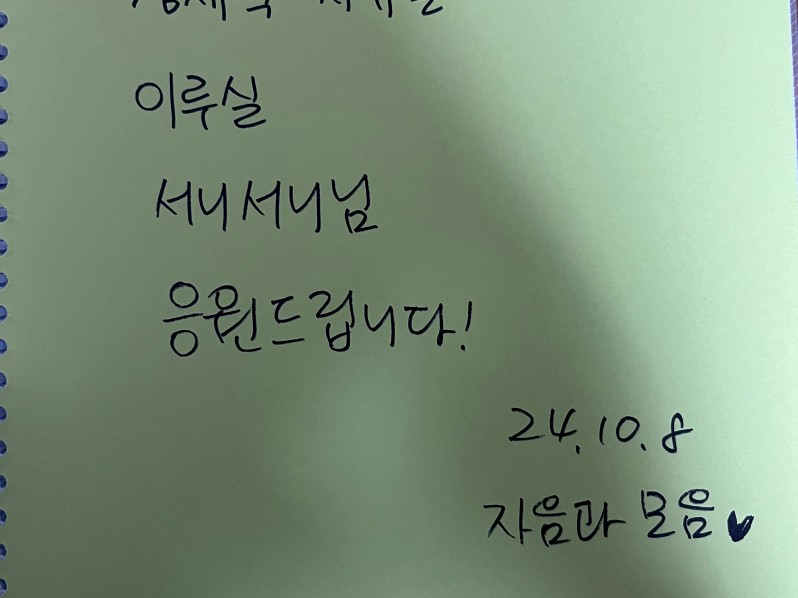 이루실
서니서니님
응원드립니다!
24.10.8
자음과 모음